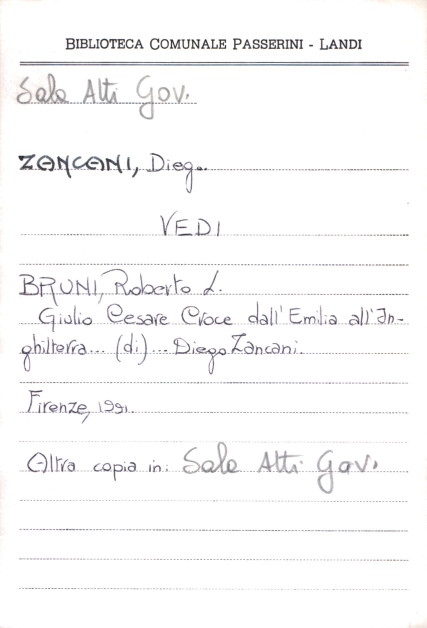 BIBLIOTECA COMUNALE PASSERINI - LANDI
Sala Atti Gov.
ZANCANI, Diego
VEDI
BRUNI, Roberto L.
Giulio Cesare Croce dall'Emilia all'In-
ghilterra... (di)... Diego Zancani.
Firenze, 1991.
Altra copia in: Sala Atti Gov.